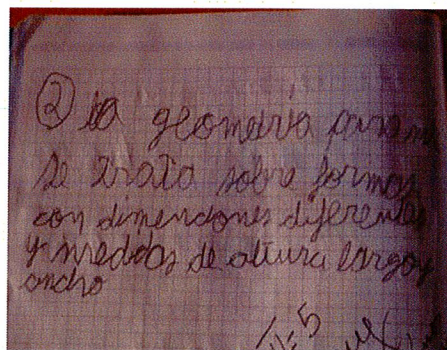 ② la geometria para m
se trata sobre formas
con dimenciones diferentes
y mreddas de altura largo y
ancho
= 5